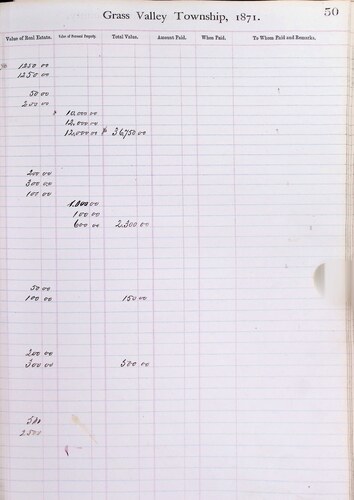 50
Grass Valley Township, 1871.
Value of Real Estate. Value of Personal Property. Total Value. Amount Paid. When Paid. To Whom Paid and Remarks.
1250 00
1250 00
50 00
200 00
10,000 00
12,000 00
12,000 00 36,750 00
200 00
300 00
100 00
1,000 00
100 00
600 00 2,300 00
50 00
100 00 150 00
200 00
300 00 500 00
2500